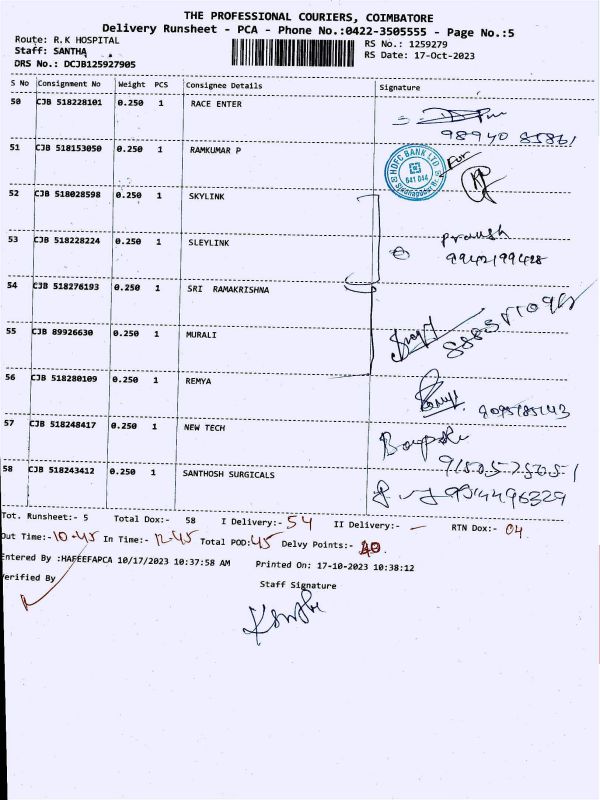 THE PROFESSIONAL COURIERS, COIMBATORE
Delivery Runsheet - PCA - Phone No.:0422-3505555 - Page No.:5
Route: R.K HOSPITAL RS No.: 1259279
Staff: SANTHA RS Date: 17-Oct-2023
DRS No.: DCJB125927905
S No Consignment No Weight PCS Consignee Details Signature
50 CJB 518228101 0.250 1 RACE ENTER
98940 85861
51 CJB 518153050 0.250 1 RAMKUMAR P
HDFC BANK LTD
641 044
For
52 CJB 518028598 0.250 1 SKYLINK
53 CJB 518228224 0.250 1 SLEYLINK
9942199428
54 CJB 518276193 0.250 1 SRI RAMAKRISHNA
55 CJB 89926630 0.250 1 MURALI
56 CJB 518280109 0.250 1 REMYA
9095185143
57 CJB 518248417 0.250 1 NEW TECH
9150575051
58 CJB 518243412 0.250 1 SANTHOSH SURGICALS
9514496329
Tot. Runsheet:- 5 Total Dox:- 58 I Delivery:- 54 II Delivery:- — RTN Dox:- 04.
Out Time:- 10-45 In Time:- 12-45 Total POD: 45 Delvy Points:- 40.
Entered By :HAFEEFAPCA 10/17/2023 10:37:58 AM Printed On: 17-10-2023 10:38:12
Verified By
Staff Signature